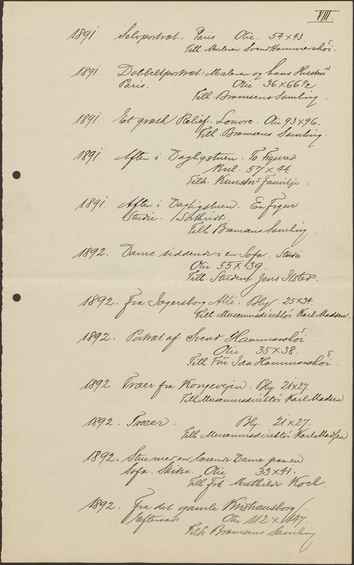 VIII
1891 Selvportræt. Paris Olie. 54 x 43
Till. Maleren Svend Hammershøi.
1891 Dobbeltportræt. Maleren og hans Hustru
Paris. Olie 36 x 66½
Till. Bramsens Samling.
1891 Et græsk Relief. Louvre. Olie 93 x 96.
Till. Bramsens Samling.
1891 Aften i Dagligstuen. To Figurer
Kul. 57 x 44
Till. Kunstners Familje.
1891 Aften i Dagligstuen. En Figur
Studie.
Till. Bramsens Samling
1892. Dame siddende i en Sofa. Studie
Olie 55 x 39
Till. Student Jens Ilsted.
1892. Fra Jægersborg Allé. Bly 25 x 34
Till. Museumsdirektør Karl Madsen.
1892. Portræt af Svend Hammershøi
Olie 35 x 38.
Till. Fru Ida Hammershøi
1892 Træer fra Kongevejen. Bly 21 x 27
Till. Museumsdirektør Karl Madsen
1892. Træer. Bly 21 x 27.
Till. Museumsdirektør Karl Madsen
1892. Stue med en læsende Dame paa en
Sofa. Skitse. Olie 33 x 41.
Till. Frk. Mathilde Koch
1892. Fra det gamle Kristiansborg
Eftermid. Olie 112 x 147
Till. Bramsens Samling